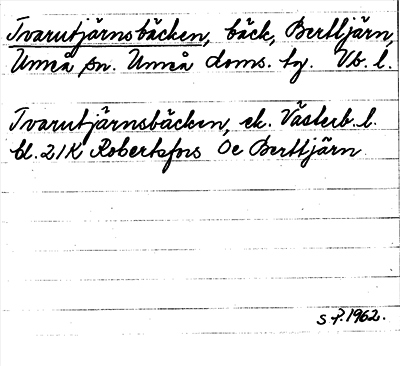 Tvarutjärnsbäcken, bäck, Berttjärn,
Umeå sn. Umeå doms. tg. Vb. l.
Tvarutjärnsbäcken, ek. Västerb. l.
bl. 21K Robertsfors Oe Berttjärn
1962.